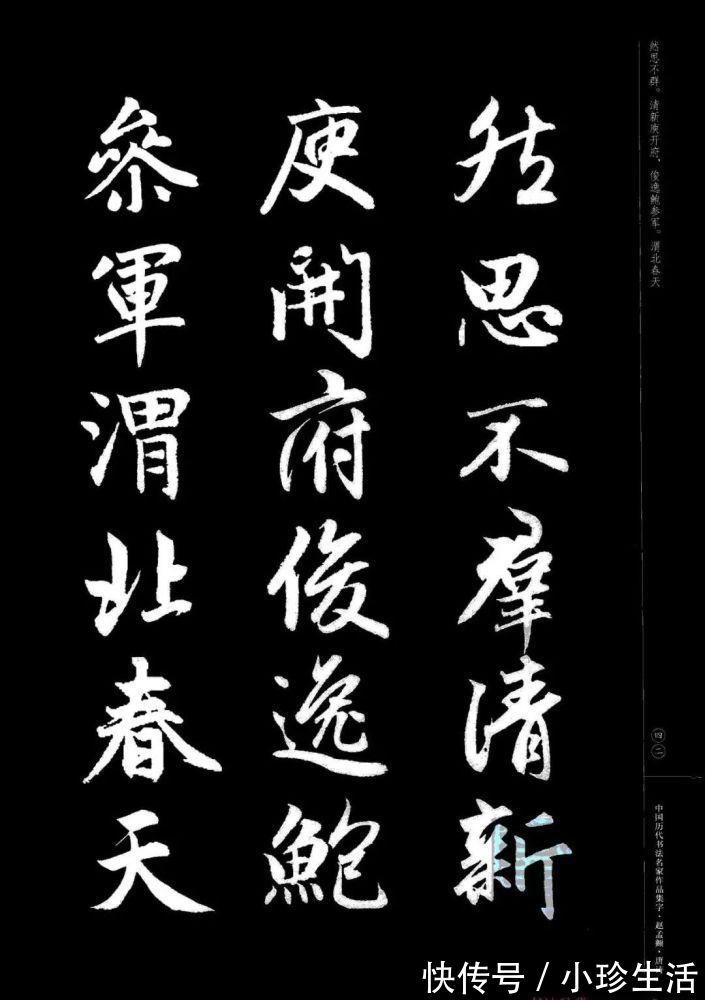 然思不羣清新
庾開府俊逸鮑
參軍渭北春天
然思不群。清新庾开府，俊逸鲍参军。渭北春天
四二
中国历代书法名家作品集字·赵孟頫·唐
快传号／小珍生活